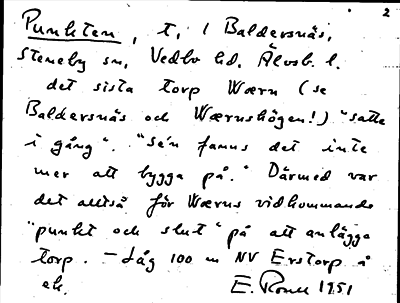 2
Punkten, t. i Baldersnäs,
Steneby sn, Vedbo hd. Älvsb. l.
det sista torp Wærn (se
Baldersnäs och Wærnshögen!) "satte
i gång". "Se'n fanns det inte
mer att bygga på." Därmed var
det alltså för Wærns vidkommande
"punkt och slut" på att anlägga
torp. - Låg 100 m NV Erstorp å
ek. E. 1951